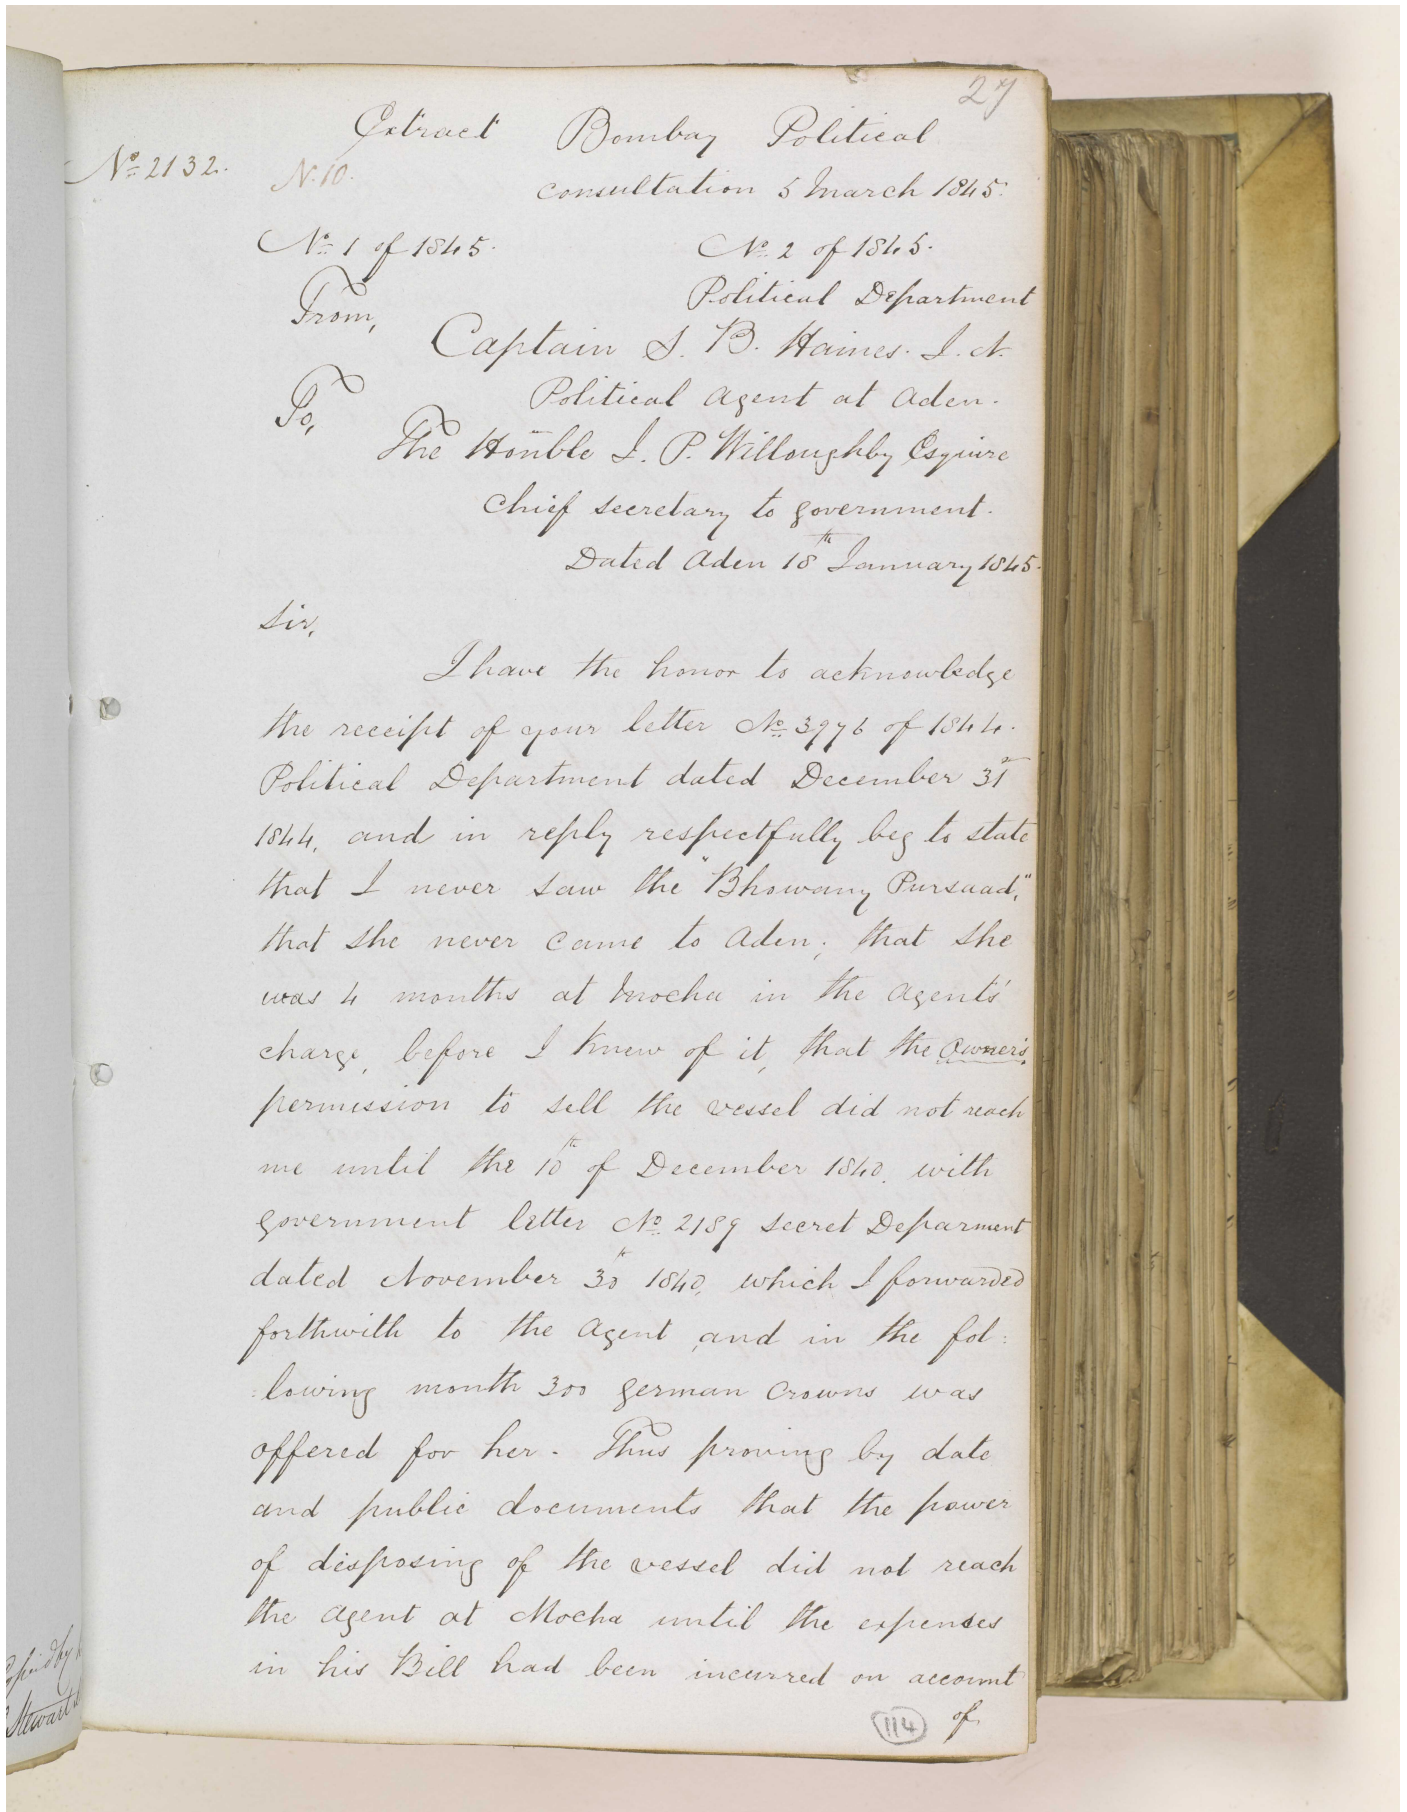 27
Extract Bombay Political
No 2132. N. 10.
consultation 5 March 1845.
No 1 of 1845. No 2 of 1845.
Political Department
From,
Captain S. B. Haines. I. N.
Political Agent at Aden.
To,
The Honble I. P. Willoughby Esquire
Chief secretary to government.
Dated Aden 18th January 1845.
Sir,
I have the honor to acknowledge
the receipt of your letter No 3976 of 1844.
Political Department dated December 31st
1844, and in reply respectfully beg to state
that I never saw the "Bhowany Pursaad,"
that she never came to Aden; that she
was 4 months at Mocha in the Agents'
charge, before I knew of it, that the Owner's,
permission to sell the vessel did not reach
me until the 10th of December 1840. with
government letter No 2189 secret Deparment
dated November 30th 1840, which I forwarded
forthwith to the Agent, and in the fol:
:lowing month 300 german Crowns was
offered for her. Thus proving by date
and public documents that the power
of disposing of the vessel did not reach
the Agent at Mocha until the expences
in his Bill had been incurred on account
of
114
Stewart